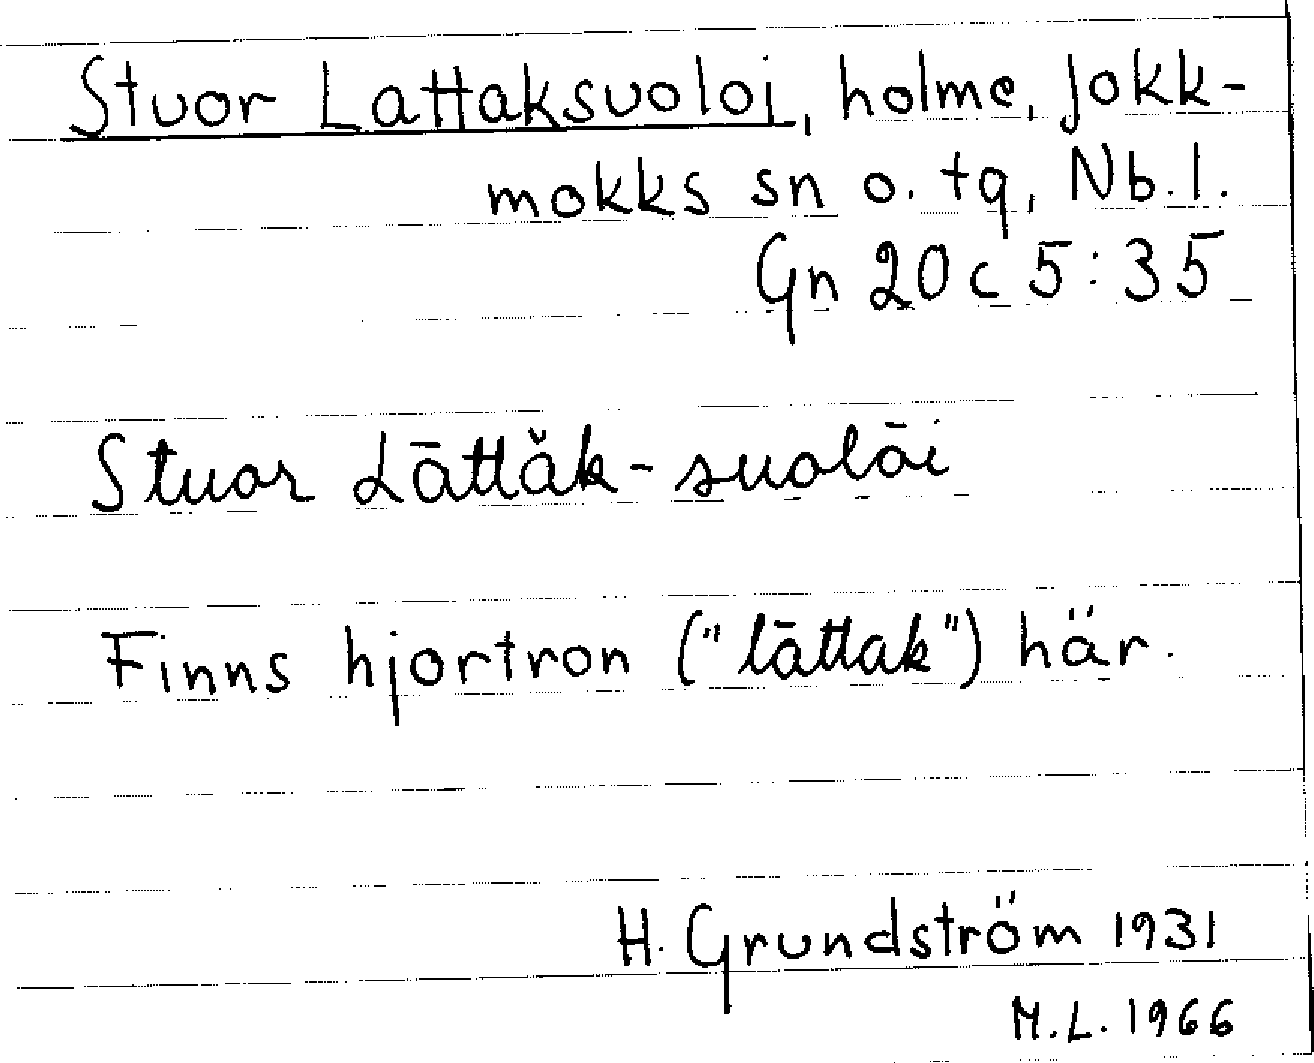 Stuor Lattaksuoloi, holme, Jokk-
mokks sn o. tg, Nb.l.
Gn 20c 5:35
Stuor Lāttăk-suolāi
Finns hjortron ("lāttak") här.
H. Grundström 1931
M.L. 1966